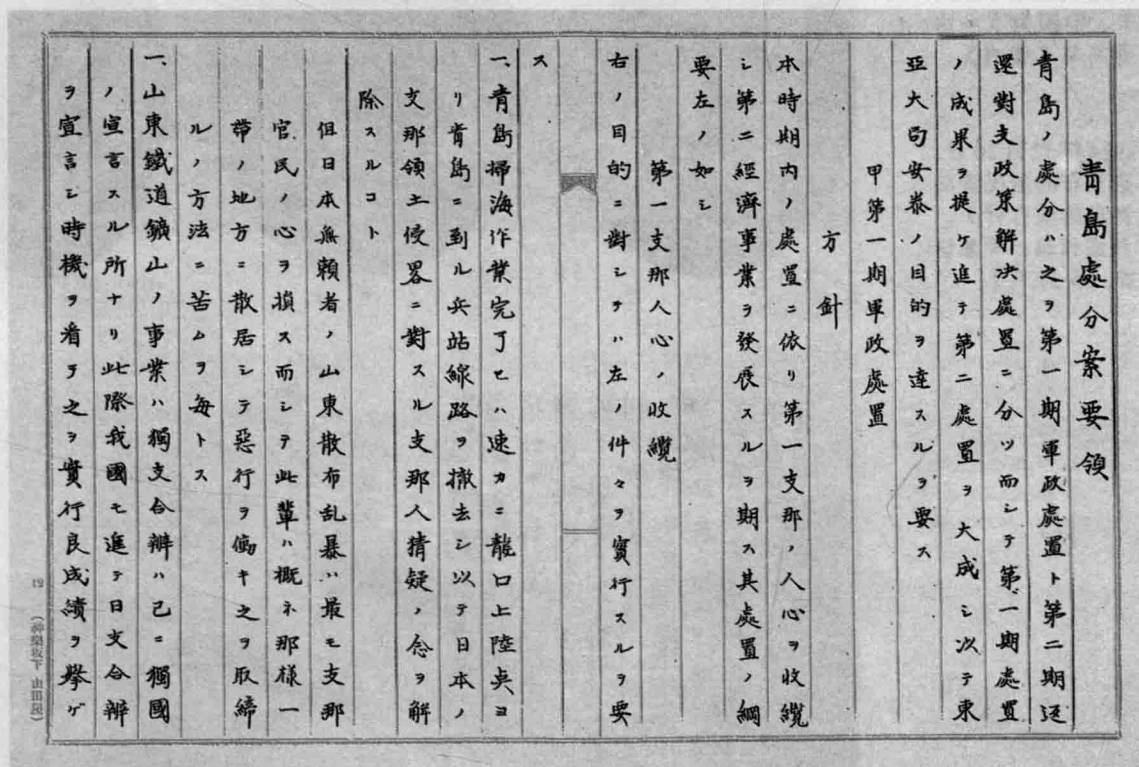 青島處分案要領
青島ノ處分ハ之ヲ第一期軍政處置ト第二期還
還對支政策解決處置ニ分ツ而シテ第一期處置
ノ成果ヲ提ケ進テ第二處置ヲ大成シ以テ東
亞大局安泰ノ目的ヲ達スルヲ要ス
甲第一期軍政處置
方針
本時期内ノ處置ニ依リ第一支那ノ人心ヲ收纜
シ第二經濟事業ヲ發展スルヲ期ス其處置ノ綱
要左ノ如シ
第一支那人心ノ收纜
右ノ目的ニ對シテハ左ノ件々ヲ實行スルヲ要
ス
一、青島掃海作業完了セハ速カニ龍口上陸点ヨ
リ青島ニ到ル兵站線路ヲ撤去シ以テ日本ノ
支那領土侵畧ニ對スル支那人猜疑ノ念ヲ解
除スルコト
但日本無賴者ノ山東散布乱暴ハ最モ支那
官民ノ心ヲ損ス而シテ此輩ハ概ネ那様一
帶ノ地方ニ散居シテ惡行ヲ働キ之ヲ取締
ルノ方法ニ苦ムヲ毎トス
一、山東鐵道鑛山ノ事業ハ獨支合辦ハ已ニ獨國
ノ宣言スル所ナリ此際我國モ進テ日支合辦
ヲ宣言シ時機ヲ看テ之ヲ實行良成績ヲ擧ゲ